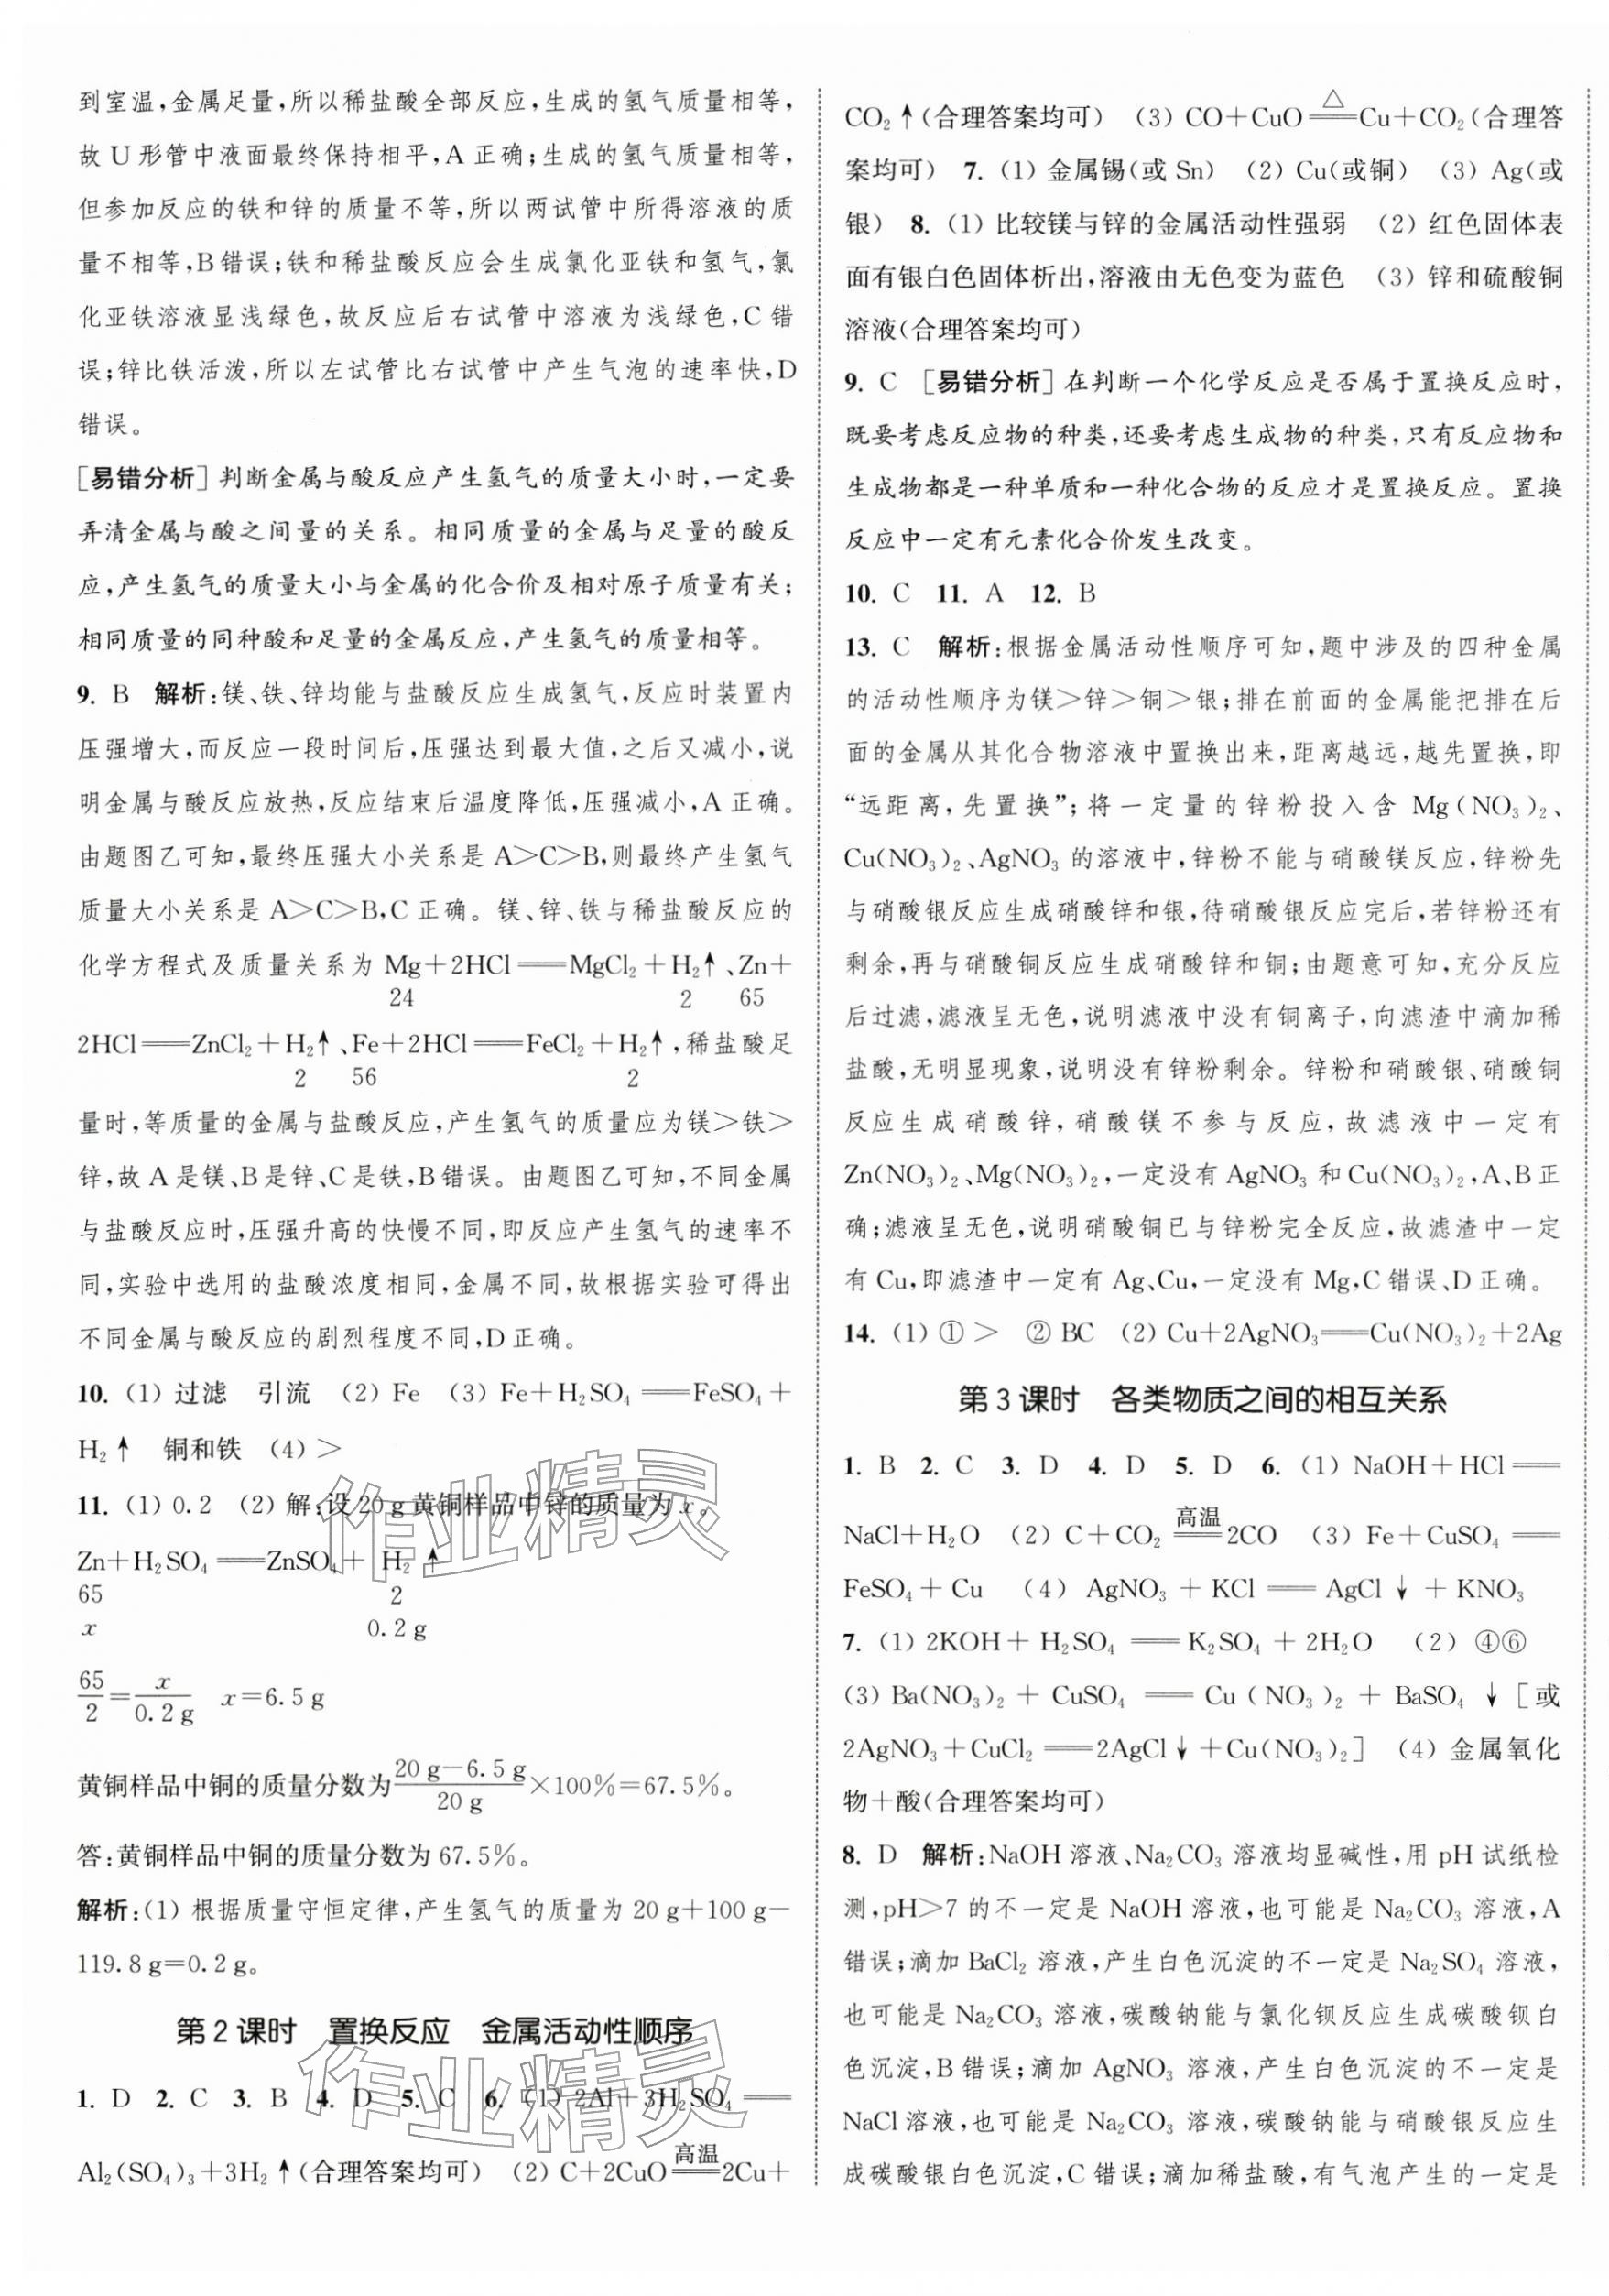 到室温,金属足量,所以稀盐酸全部反应,生成的氢气质量相等,
故 U 形管中液面最终保持相平,A 正确;生成的氢气质量相等,
但参加反应的铁和锌的质量不等,所以两试管中所得溶液的质
量不相等,B错误;铁和稀盐酸反应会生成氯化亚铁和氢气,氯
化亚铁溶液显浅绿色,故反应后右试管中溶液为浅绿色,C 错
误;锌比铁活泼,所以左试管比右试管中产生气泡的速率快,D
错误。
[易错分析] 判断金属与酸反应产生氢气的质量大小时,一定要
弄清金属与酸之间量的关系。相同质量的金属与足量的酸反
应,产生氢气的质量大小与金属的化合价及相对原子质量有关;
相同质量的同种酸和足量的金属反应,产生氢气的质量相等。
9. B 解析:镁、铁、锌均能与盐酸反应生成氢气,反应时装置内
压强增大,而反应一段时间后,压强达到最大值,之后又减小,说
明金属与酸反应放热,反应结束后温度降低,压强减小,A 正确。
由题图乙可知,最终压强大小关系是 A>C>B,则最终产生氢气
质量大小关系是 A>C>B,C 正确。镁、锌、铁与稀盐酸反应的
化学方程式及质量关系为 Mg+2HCl══MgCl₂+H₂↑、Zn+
24 2 65
2HCl══ZnCl₂+H₂↑、Fe+2HCl══FeCl₂+H₂↑,稀盐酸足
2 56 2
量时,等质量的金属与盐酸反应,产生氢气的质量应为镁>铁>
锌,故 A 是镁、B 是锌、C 是铁,B 错误。由题图乙可知,不同金属
与盐酸反应时,压强升高的快慢不同,即反应产生氢气的速率不
同,实验中选用的盐酸浓度相同,金属不同,故根据实验可得出
不同金属与酸反应的剧烈程度不同,D 正确。
10. (1) 过滤 引流 (2) Fe (3) Fe+H₂SO₄══FeSO₄+
H₂↑ 铜和铁 (4) >
11. (1) 0.2 (2) 解:设 20 g 黄铜样品中锌的质量为 x。
Zn+H₂SO₄══ZnSO₄+ H₂↑
65 2
x 0.2 g
65/2=x/0.2 g x=6.5 g
黄铜样品中铜的质量分数为(20 g-6.5 g)/20 g×100%=67.5%。
答:黄铜样品中铜的质量分数为 67.5%。
解析:(1) 根据质量守恒定律,产生氢气的质量为 20 g+100 g-
119.8 g=0.2 g。
第 2 课时 置换反应 金属活动性顺序
1. D 2. C 3. B 4. D 5. C 6. (1) 2Al+3H₂SO₄══
Al₂(SO₄)₃+3H₂↑(合理答案均可) (2) C+2CuO═高温═2Cu+
CO₂↑(合理答案均可) (3) CO+CuO═△═Cu+CO₂(合理答
案均可) 7. (1) 金属锡(或 Sn) (2) Cu(或铜) (3) Ag(或
银) 8. (1) 比较镁与锌的金属活动性强弱 (2) 红色固体表
面有银白色固体析出,溶液由无色变为蓝色 (3) 锌和硫酸铜
溶液(合理答案均可)
9. C [易错分析] 在判断一个化学反应是否属于置换反应时,
既要考虑反应物的种类,还要考虑生成物的种类,只有反应物和
生成物都是一种单质和一种化合物的反应才是置换反应。置换
反应中一定有元素化合价发生改变。
10. C 11. A 12. B
13. C 解析:根据金属活动性顺序可知,题中涉及的四种金属
的活动性顺序为镁>锌>铜>银;排在前面的金属能把排在后
面的金属从其化合物溶液中置换出来,距离越远,越先置换,即
“远距离,先置换”;将一定量的锌粉投入含 Mg(NO₃)₂、
Cu(NO₃)₂、AgNO₃ 的溶液中,锌粉不能与硝酸镁反应,锌粉先
与硝酸银反应生成硝酸锌和银,待硝酸银反应完后,若锌粉还有
剩余,再与硝酸铜反应生成硝酸锌和铜;由题意可知,充分反应
后过滤,滤液呈无色,说明滤液中没有铜离子,向滤渣中滴加稀
盐酸,无明显现象,说明没有锌粉剩余。锌粉和硝酸银、硝酸铜
反应生成硝酸锌,硝酸镁不参与反应,故滤液中一定有
Zn(NO₃)₂、Mg(NO₃)₂,一定没有 AgNO₃ 和 Cu(NO₃)₂,A、B 正
确;滤液呈无色,说明硝酸铜已与锌粉完全反应,故滤渣中一定
有 Cu,即滤渣中一定有 Ag、Cu,一定没有 Mg,C 错误、D 正确。
14. (1) ① > ② BC (2) Cu+2AgNO₃══Cu(NO₃)₂+2Ag
第 3 课时 各类物质之间的相互关系
1. B 2. C 3. D 4. D 5. D 6. (1) NaOH+HCl══
NaCl+H₂O (2) C+CO₂═高温═2CO (3) Fe+CuSO₄══
FeSO₄+Cu (4) AgNO₃+KCl══AgCl↓+KNO₃
7. (1) 2KOH+H₂SO₄══K₂SO₄+2H₂O (2) ④⑥
(3) Ba(NO₃)₂+CuSO₄══Cu(NO₃)₂+BaSO₄↓[或
2AgNO₃+CuCl₂══2AgCl↓+Cu(NO₃)₂] (4) 金属氧化
物+酸(合理答案均可)
8. D 解析:NaOH 溶液、Na₂CO₃ 溶液均显碱性,用 pH 试纸检
测,pH>7 的不一定是 NaOH 溶液,也可能是 Na₂CO₃ 溶液,A
错误;滴加 BaCl₂ 溶液,产生白色沉淀的不一定是 Na₂SO₄ 溶液,
也可能是 Na₂CO₃ 溶液,碳酸钠能与氯化钡反应生成碳酸钡白
色沉淀,B 错误;滴加 AgNO₃ 溶液,产生白色沉淀的不一定是
NaCl 溶液,也可能是 Na₂CO₃ 溶液,碳酸钠能与硝酸银反应生
成碳酸银白色沉淀,C 错误;滴加稀盐酸,有气泡产生的一定是
作业精灵
作业精灵